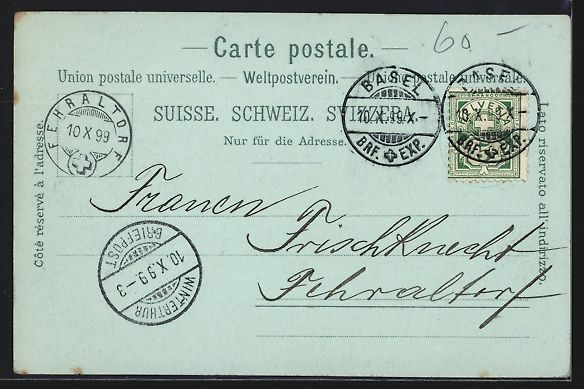 60-
— Carte postale. —
Union postale universelle. — Weltpostverein. — Unione postale universale.
SUISSE. SCHWEIZ. SVIZZERA.
Nur für die Adresse.
Côté réservé à l'adresse.
Lato riservato all'indirizzo.
FEHRALTORF
10 X 99
BASEL
10.X.99.X-
BRF. EXP.
BASEL
10.X.
BRF. EXP.
FRANCO
WINTERTHUR
10.X.99-3
BRIEFPOST
Frauen
Frischknecht
Fehraltorf